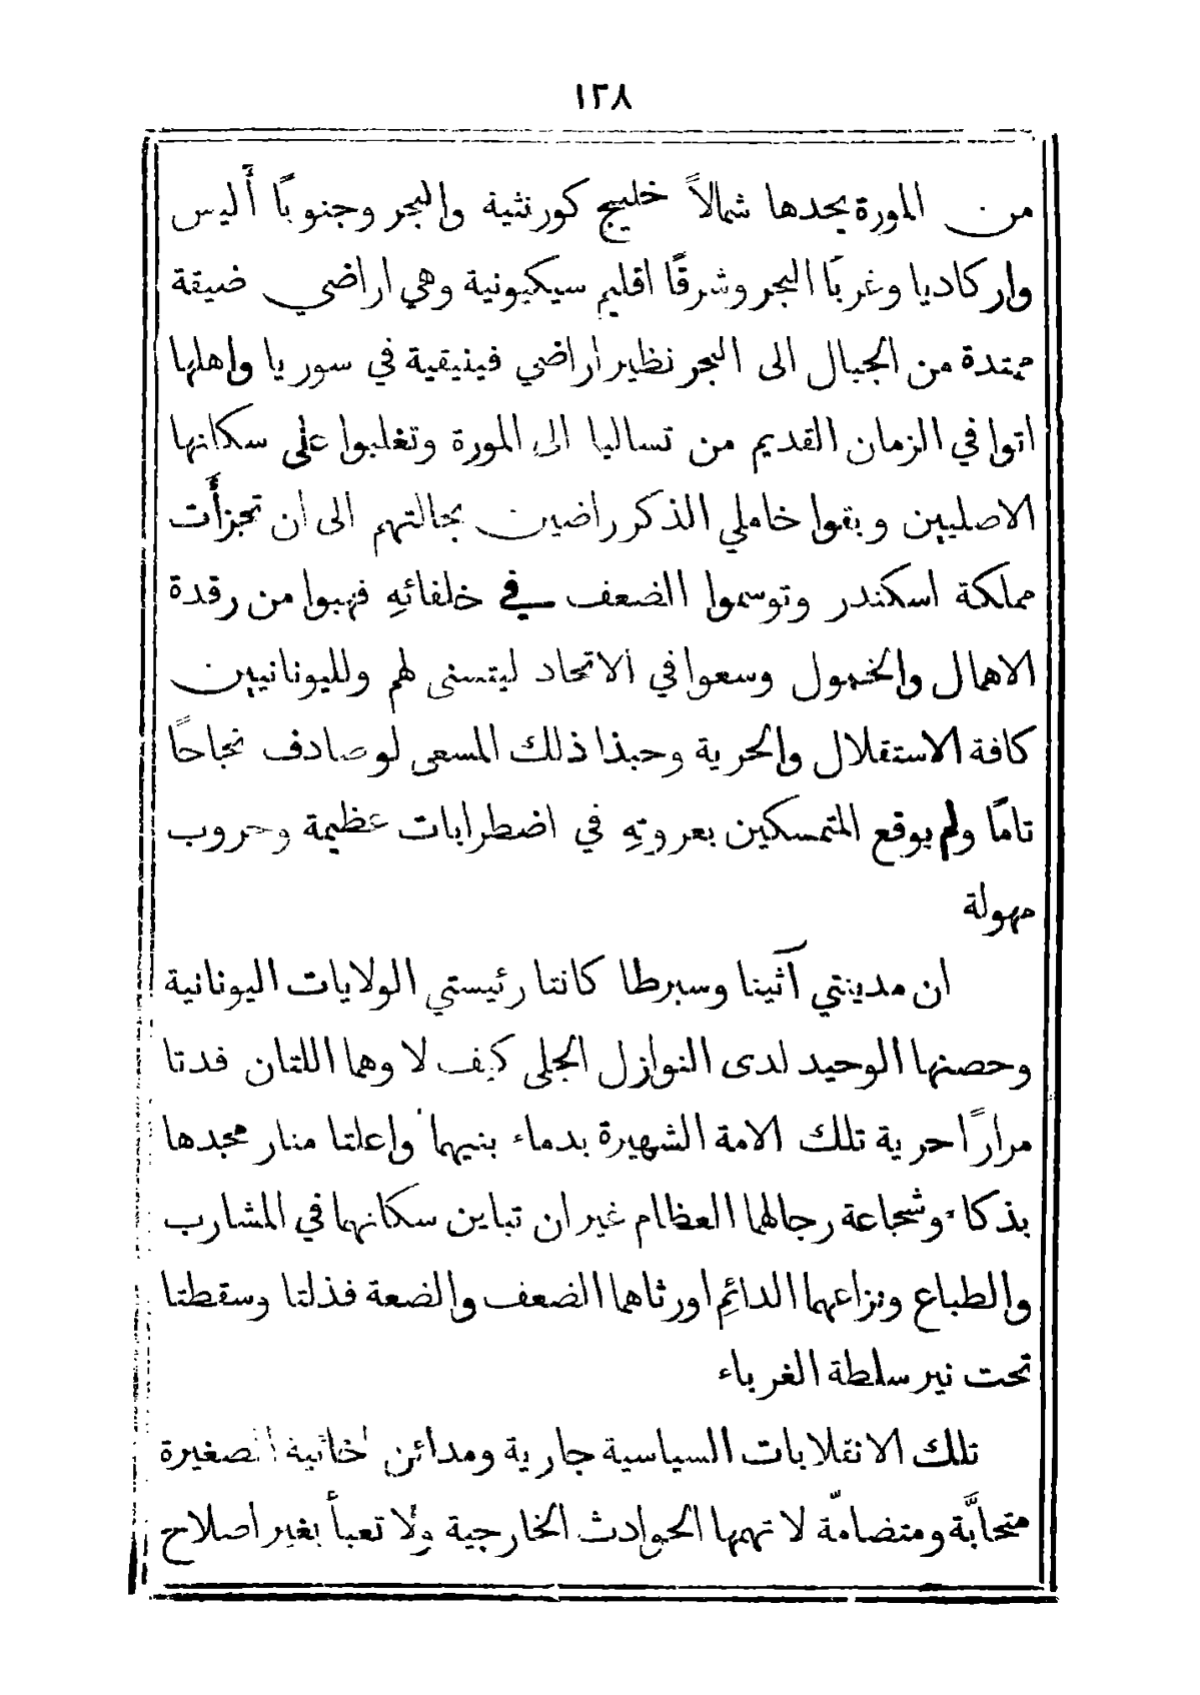 ١٢٨
من المورة يحدها شمالاً خليج كورنثية والبحر وجنوبًا أليس
واركاديا وغربًا البحر وشرقًا اقليم سيكيونية وهي اراضي ضيقة
ممتدة من الجبال الى البحر نظير اراضي فينيقية في سوريا واهلها
اتوا في الزمان القديم من تساليا الى المورة وتغلبوا على سكانها
الاصليين وبقوا خاملي الذكر راضين بحالتهم الى ان تجزأت
مملكة اسكندر وتوسموا الضعف في خلفائهِ فهبوا من رقدة
الاهمال والخمول وسعوا في الاتحاد ليتسنى لهم ولليونانيين
كافة الاستقلال والحرية وحبذا ذلك المسعى لو صادف نجاحًا
تامًا ولم يوقع المتمسكين بعروتهِ في اضطرابات عظيمة وحروب
مهولة
ان مدينتي آثينا وسبرطا كانتا رئيستي الولايات اليونانية
وحصنها الوحيد لدى النوازل الجلى كيف لا وهما اللتان فدتا
مرارًا حرية تلك الامة الشهيرة بدماء بنيهما واعلتا منار مجدها
بذكاء وشجاعة رجالهما العظام غير ان تباين سكانهما في المشارب
والطباع ونزاعهما الدائمِ اورثاهما الضعف والضعة فذلتا وسقطتا
تحت نير سلطة الغرباء
تلك الانقلابات السياسية جارية ومدائن اخائية الصغيرة
متحابَّة ومتضامّة لا تهمها الحوادث الخارجية ولا تعبأ بغير اصلاح